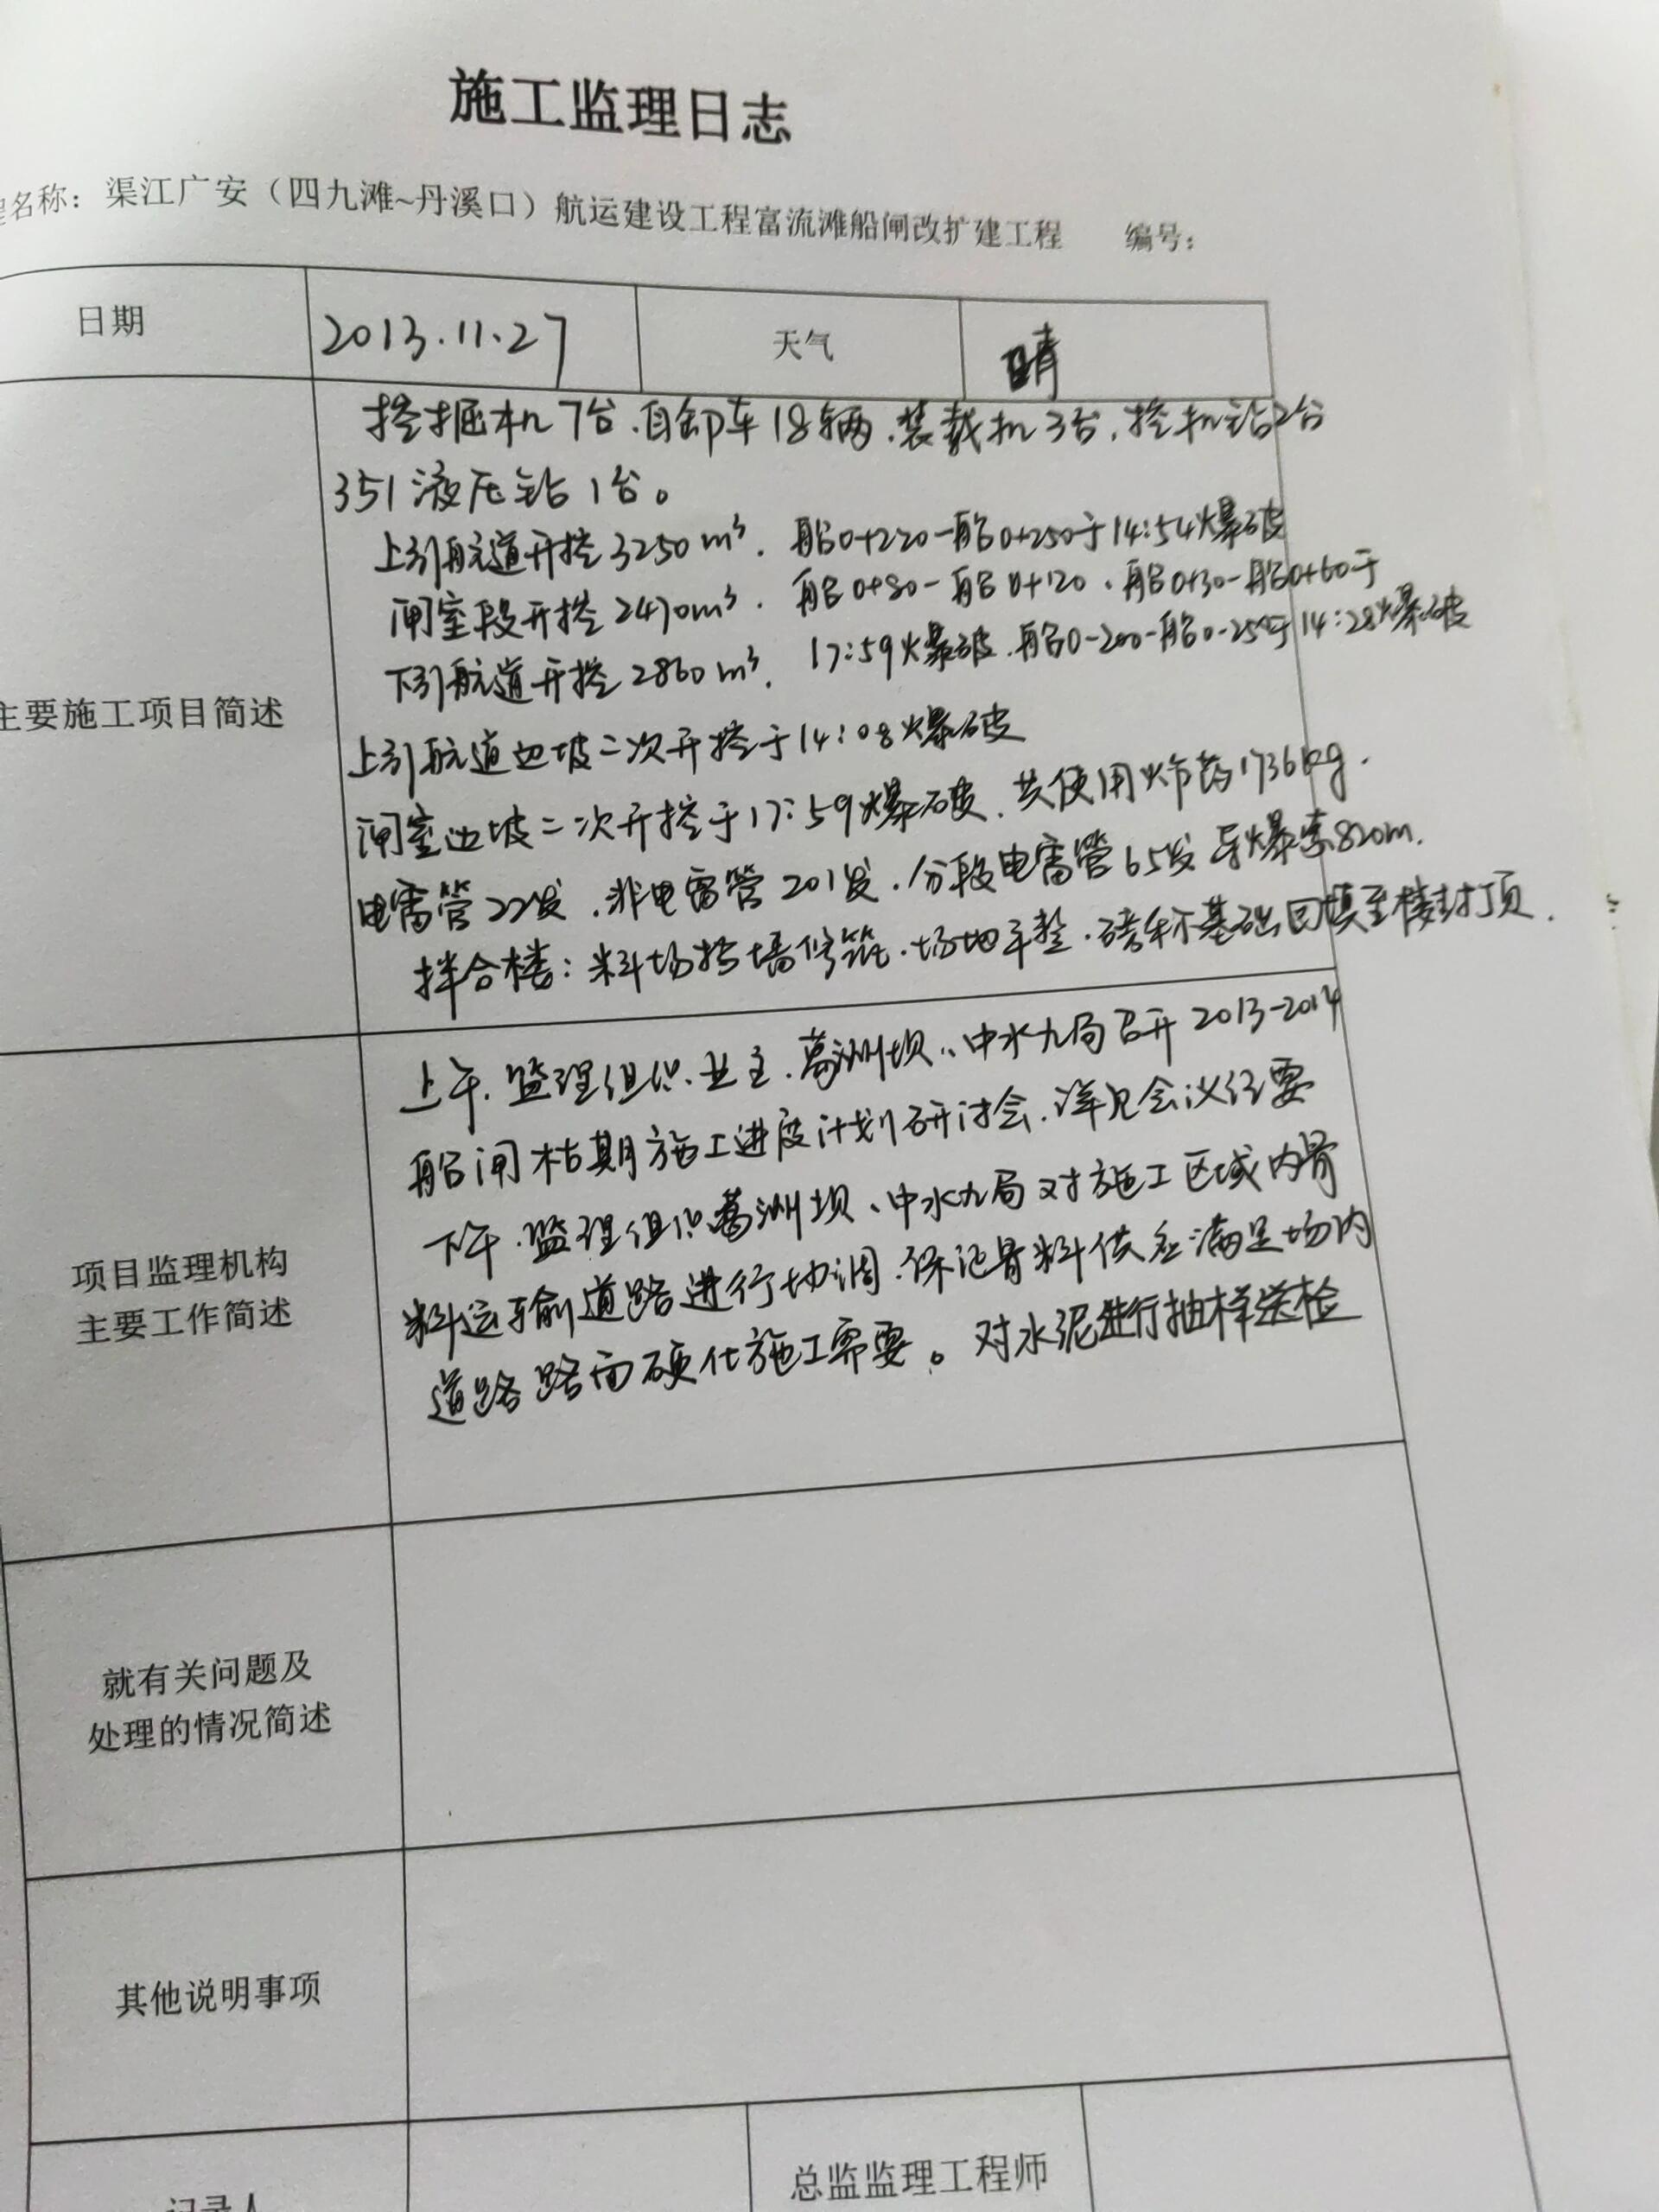 施工监理日志
程名称：渠江广安（四九滩~丹溪口）航运建设工程富流滩船闸改扩建工程 编号：
日期 2013.11.27 天气 晴
挖掘机7台.自卸车18辆.装载机3台.挖机钻2台
351液压钻1台。
上引航道开挖3250m³. 船0+220-船0+250于14:54爆破
闸室段开挖2470m³. 船0+80-船0+120.船0+30-船0+60于
下引航道开挖2860m³. 17:59爆破.船0-200-船0-250于14:28爆破
主要施工项目简述
上引航道边坡二次开挖于14:08爆破
闸室边坡二次开挖于17:59爆破.共使用炸药1736kg.
电雷管22发.非电雷管201发.分段电雷管65发 导爆索820m.
拌合楼：料场挡墙修筑.场地平整.基础回填至楼封顶.
上午.监理组织.业主.葛洲坝、中水九局召开2013-2014
船闸枯期施工进度计划研讨会.详见会议纪要
下午.监理组织葛洲坝、中水九局对施工区域内骨
料运输道路进行协调.保证骨料供应满足场内
道路路面硬化施工需要。对水泥进行抽样送检
项目监理机构
主要工作简述
就有关问题及
处理的情况简述
其他说明事项
记录人 总监监理工程师